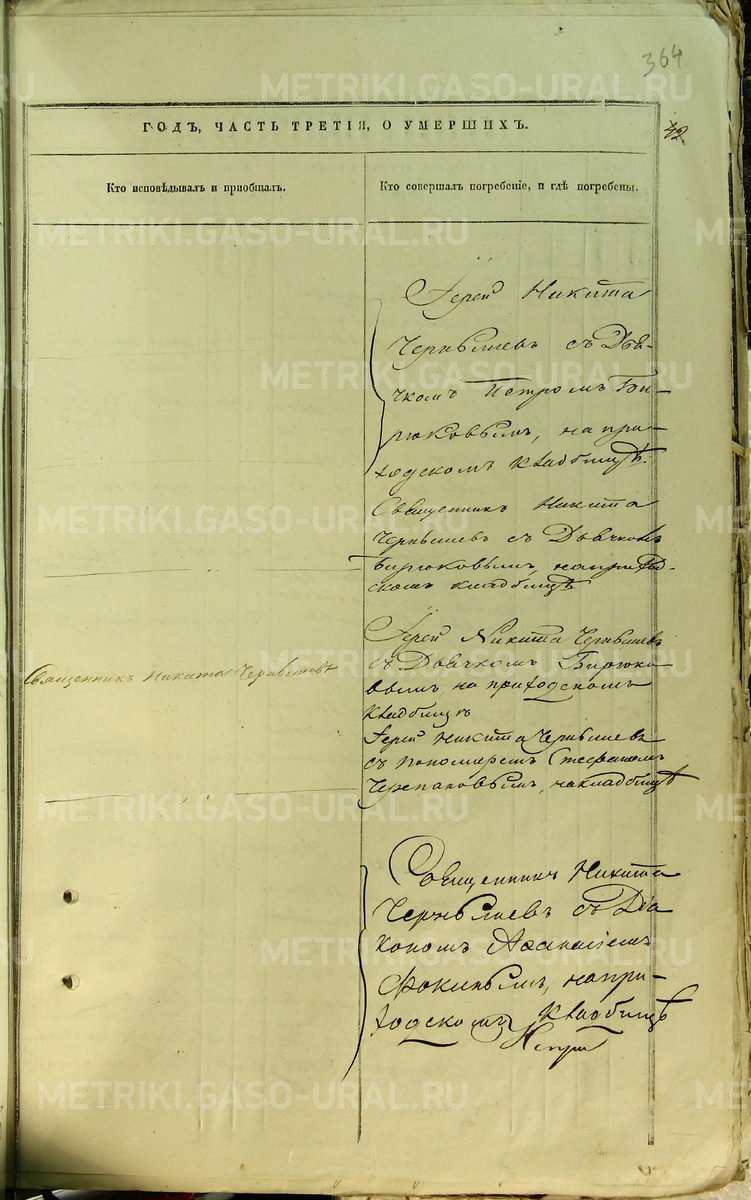 364
ГОДЪ, ЧАСТЬ ТРЕТІЯ, О УМЕРШИХЪ.
42.
Кто исповѣдывалъ и приобщалъ.
Кто совершалъ погребеніе, и гдѣ погребены.
Іерей Никита
Чернышевъ съ Дьяч-
комъ Петромъ Би-
рюковымъ, на при-
ходскомъ кладбищѣ.
Священникъ Никита
Чернышевъ съ Дьячкомъ
Бирюковымъ, на приход-
скомъ кладбищѣ
Іерей Никита Чернышевъ
съ Дьячкомъ Бирюко-
вымъ, на приходскомъ
кладбищѣ
Священникъ Никита Чернышевъ
Іерей Никита Чернышевъ
съ пономаремъ Стефаномъ
Черепановымъ, на кладбищѣ
Священникъ Никита
Чернышевъ съ Діа
кономъ Аѳанасіемъ
Фокинымъ, на при-
ходскомъ кладбищѣ
METRIKI.GASO-URAL.RU